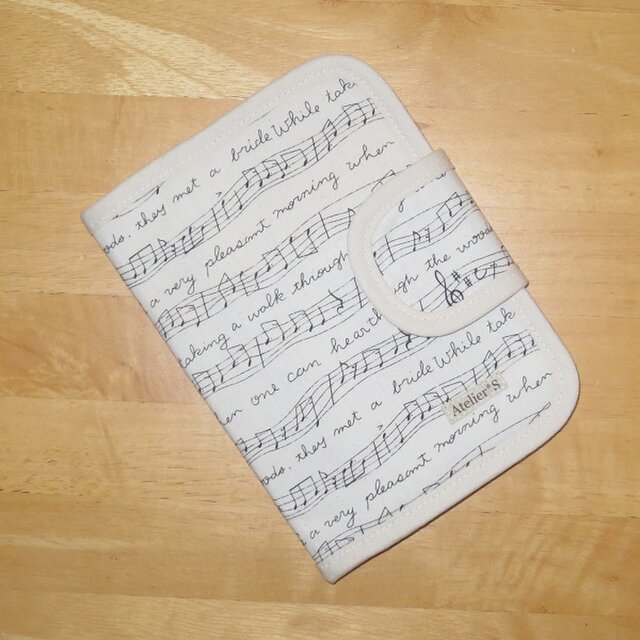 ods, they met a bride While tak
a very pleasant morning when
taking a walk through gh the wood
en one can hear th
ods, they met a bride While tak
Atelier*S
a very pleasant morning when